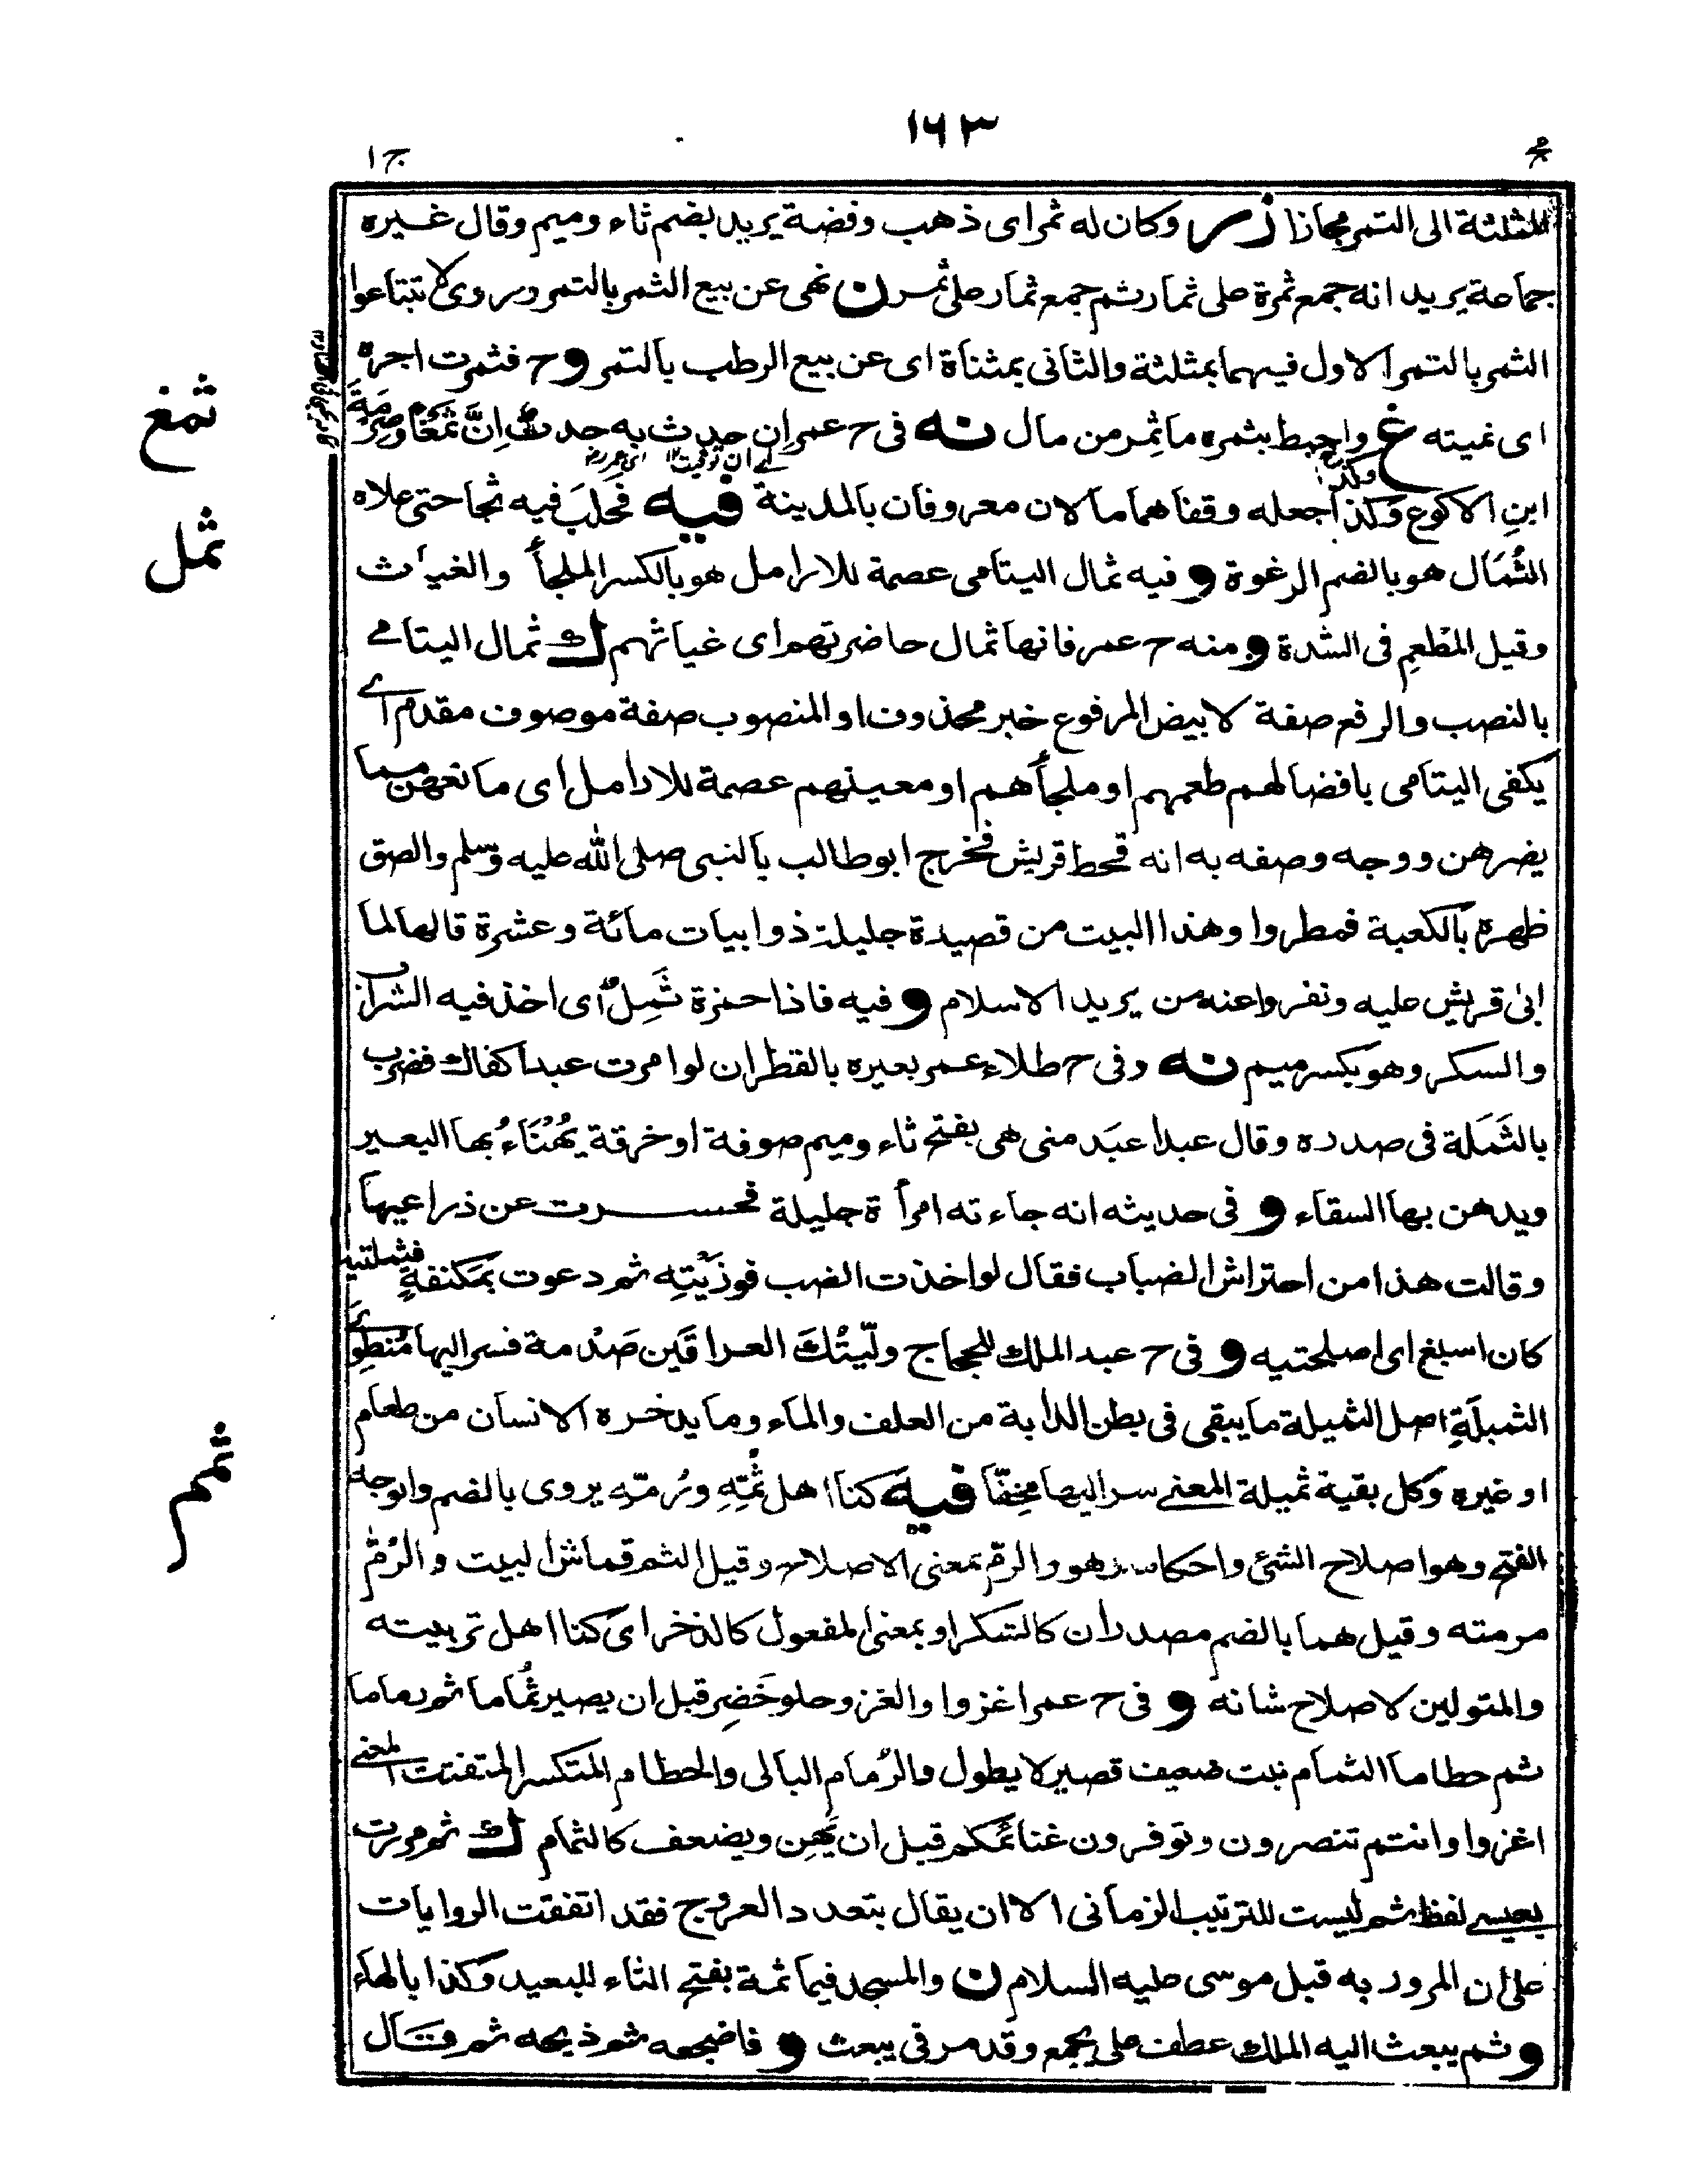 ١٦٣
ج ١
المثلثة الى التمر مجازا زر وكان له ثمر اى ذهب وفضة يريد بضم ثاء وميم وقال غيره
جماعة يريد انه جمع ثمرة على ثمار ثم جمع ثمار على ثمر ن نهى عن بيع الثمر بالتمر وروى لا تبتاعوا
الثمر بالتمر الاول فيهما بمثلثة والثانى بمثناة اى عن بيع الرطب بالتمر و ح فثمرت اجره
اى نميته غ واحيط بثمره ما ثمر من مال نه فى ح عمر ان حدث به حدث اِنَّ ثَمْغًا وصِرْمَةَ
ثمغ
ابنِ الاكوع وكذا جعله وقفا هما مالان معروفان بالمدينة فيه فحلب فيه ثجا حتى علاه
ثمل
الثُمَال هو بالضم الرغوة و فيه ثمال اليتامى عصمة للارامل هو بالكسر الملجأ والغياث
وقيل المُطْعِم فى الشدة و منه ح عمر فانها ثمال حاضرتهم اى غياثهم ك ثمال اليتامے
بالنصب والرفع صفة لابيض المرفوع خبر محذوف او المنصوب صفة موصوف مقدم اے
يكفى اليتامى بافضالهم طعمهم او ملجأهم او معينهم عصمة للارامل اى مانعهن مما
يضرهن ووجه وصفه به انه قحط قريش فخرج ابو طالب بالنبى صلى الله عليه وسلم والصق
ظهره بالكعبة فمطروا وهذا البيت من قصيدة جليلة ذو ابيات مائة وعشرة قالها لما
ابى قريش عليه ونفروا عنه من يريد الاسلام و فيه فاذا حمزة ثَمِلٌ اى اخذ فيه الشراب
والسكر وهو بكسر ميم نه وفى ح طلاء عمر بعيره بالقطران لو امرت عبدا كفاك فضرب
بالثَمَلة فى صدره وقال عبدا عبَد منى هى بفتح ثاء وميم صوفة او خرقة يُهْنَاءُ بها البعير
ويدهن بها السقاء و فى حديثه انه جاءته امرأة جليلة فحسرت عن ذراعيها
وقالت هذا من احتراش الضباب فقال لو اخذت الضب فوزيْتِه ثم دعوت بمَكنفةٍ فثملتيه
كان اسبغ اى اصلحتيه و فى ح عبد الملك للحجاج ولّيتُكَ العراقَين صَدْمة فسر اليها مُنْطِوىَ
الثميلَةِ اصل الثميلة ما يبقى فى بطن الدابة من العلف والماء وما يدخره الانسان من طعام
او غيره وكل بقية ثميلة المعنى سر اليها مخِفّا فيه كنا اهل ثُمّهِ ورُمّهِ يروى بالضم والوجه
ثمم
الفتح وهو اصلاح الشئ واحكامه هو والرمّ بمعنى الاصلاح وقيل الثم قماش البيت والرُمّ
مرمته وقيل هما بالضم مصدران كالشكر او بمعنى المفعول كالذخر اى كنا اهل تربيته
والمتولين لاصلاح شانه و فى ح عمر اغزوا والغزو حلو خَضِر قبل ان يصير ثُماما ثم رماما
ثم حطاما الثمام نبت ضعيف قصير لا يطول والرُمام البالى والحطام المتكسر المتفتت المعنے
اغزوا وانتم تنصرون وتوفرون غنائمكم قبل ان يَهِن ويضعف كالثمام ك ثم مررت
بعيسے لفظ ثم ليست للترتيب الزمانى الا ان يقال بتعدد العروج فقد اتفقت الروايات
على ان المرور به قبل موسى عليه السلام ن والمسجد فيما ثمة بفتح الثاء للبعيد وكذا بالهاء
و ثم يبعث اليه الملك عطف على يجمع وقد مر فى يبعث و فاضجعه ثم ذبحه ثم قال